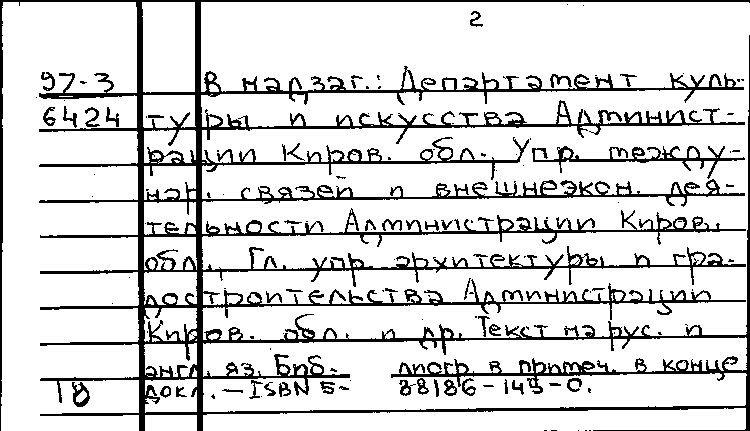 2
97-3 В надзаг.: Департамент куль-
6424 туры и искусства Админист-
рации Киров. обл., Упр. между-
нар. связей и внешнеэкон. дея-
тельности Администрации Киров.
обл., Гл. упр. архитектуры и гра-
достроительства Администрации
Киров. обл. и др. Текст на рус. и
англ. яз. Биб- лиогр. в примеч. в конце
18 докл. — ISBN 5- 88186-145-0.